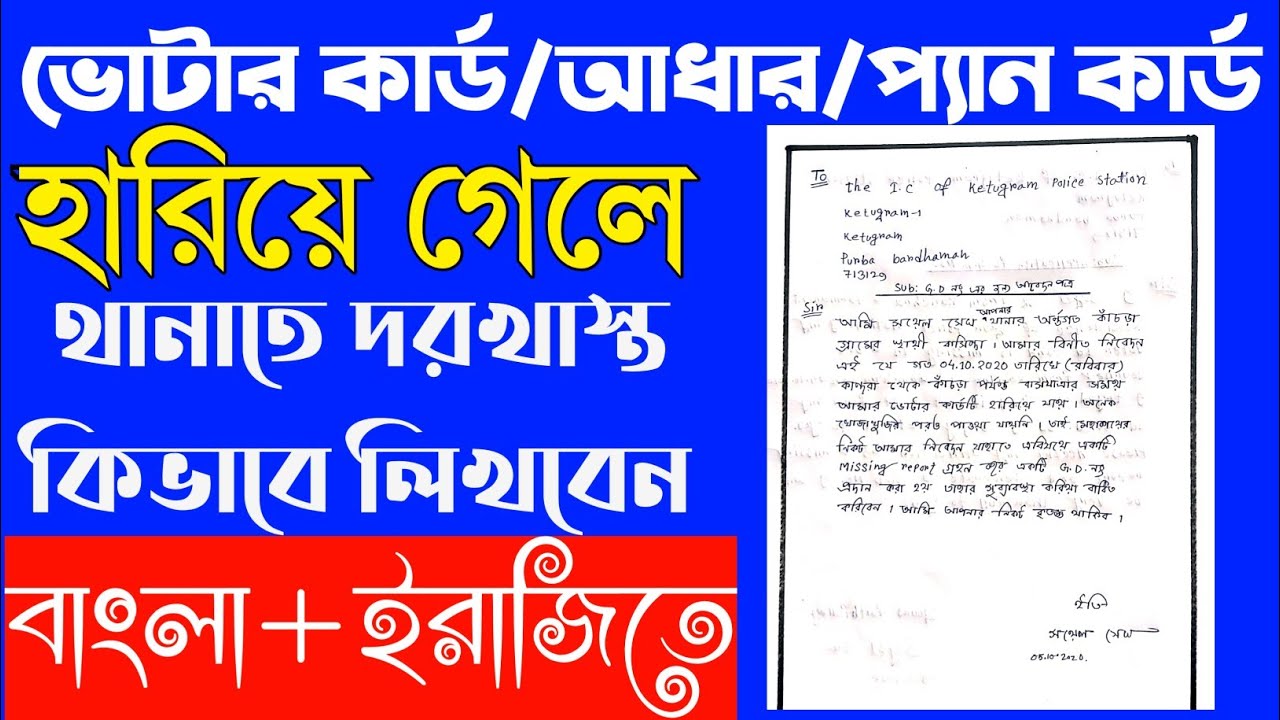 ভোটার কার্ড/আধার/প্যান কার্ড
হারিয়ে গেলে
থানাতে দরখাস্ত
কিভাবে লিখবেন
বাংলা+ইরাজিতে
To
the I.C of Ketugram Police Station
Ketugram-1
Ketugram
Purba bandhaman
713129
Sub: G.D নং এর জন্য আবেদন পত্র
Sir
আপনার
আমি সেখ থানার অর্ন্তগত কাঁচড়া
গ্রামের স্থায়ী বাসিন্দা । আমার বিনীত নিবেদন
এই যে গত 04.10.2020 তারিখে (রবিবার)
কান্দরা থেকে কাঁচড়া পর্যন্ত বাসযাত্রার সময়
আমার ভোটার কার্ডটি হারিয়ে যায় । অনেক
খোজাখুজির পরও পাওয়া যায়নি । তাই মহাশয়ের
নিকট আমার নিবেদন যাহাতে এবিষয়ে একটি
Missing report গ্রহন করে একটি G.D. নং
প্রদান করা হয় তাহার সুব্যাবস্থা করিয়া বাধিত
করিবেন । আমি আপনার নিকট কৃতজ্ঞ থাকিব ।
ইতি
সেখ
05.10.2020.